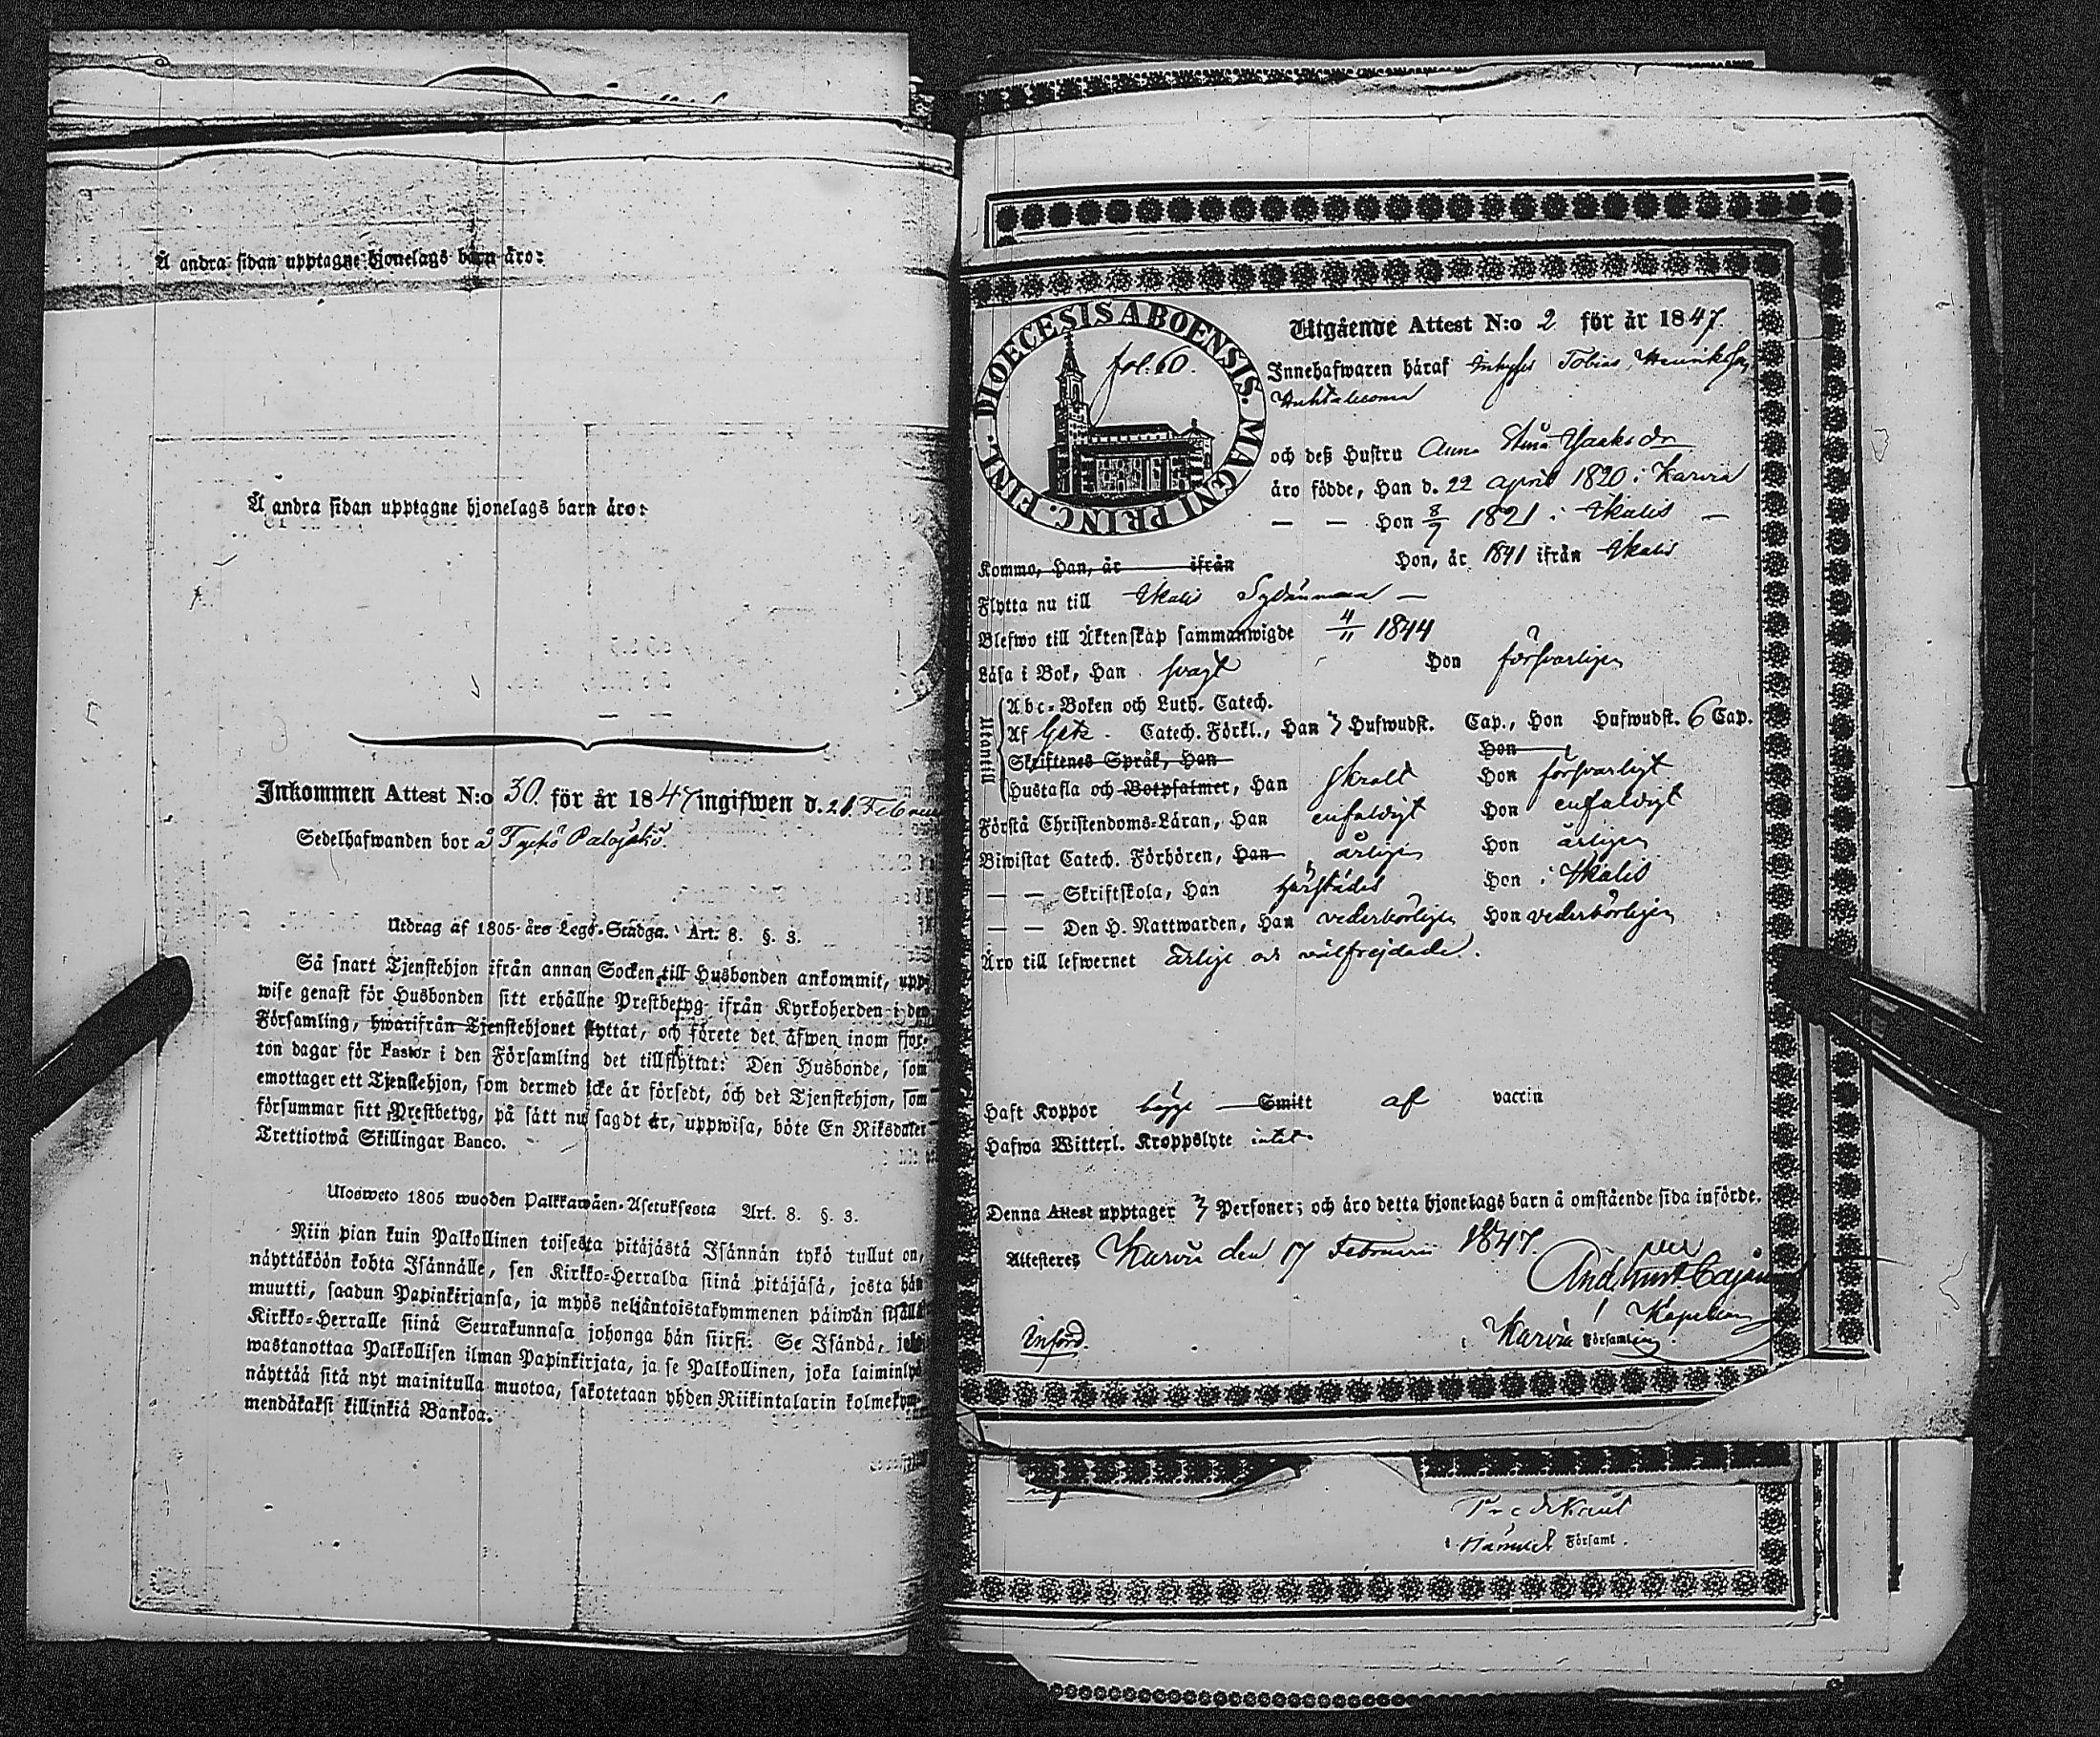 Å andra sidan upptagne hjonelags barn äro:
Å andra sidan upptagne hjonelags barn äro:
Inkommen Attest N:o 30. för år 1847 ingifwen d. 21. Februarii
Sedelhafwanden bor å Tyckö Palojoki.
Utdrag af 1805 års Lego-Stadga. Art. 8. §. 3.
Så snart Tjenstehjon ifrån annan Socken till Husbonden ankommit, upp-
wise genast för Husbonden sitt erhållne Prestbetyg ifrån Kyrkoherden i den
Församling, hwarifrån Tjenstehjonet flyttat, och förete det äfwen inom fjor-
ton dagar för Pastor i den Församling det tillflyttat: Den Husbonde, som
emottager ett Tjenstehjon, som dermed icke är försedt, och det Tjenstehjon, som
försummar sitt Prestbetyg, på sätt nu sagdt är, uppwisa, böte En Riksdaler
Trettiotwå Skillingar Banco.
Ulosweto 1805 wuoden Palkkawäen-Asetuksesta Art. 8. §. 3.
Niin pian kuin Palkollinen toisesta pitäjästä Isännän tykö tullut on,
näyttäköön kohta Isännälle, sen Kirkko-Herralda siinä pitäjäsä, josta hän
muutti, saadun Papinkirjansa, ja myös neljäntoistakymmenen päiwän sisällä
Kirkko-Herralle siinä Seurakunnasa johonga hän siirsi: Se Isändä, joka
wastanottaa Palkollisen ilman Papinkirjata, ja se Palkollinen, joka laiminlyö
näyttää sitä nyt mainitulla muotoa, sakotetaan yhden Riikintalarin kolmekym-
mendäkaksi killinkiä Bankoa.
DIOECESIS ABOENSIS. MAGNI PRINC. FINL.
fol. 60.
Utgående Attest N:o 2 för år 1847.
Innehafwaren häraf Inhyses Tobias Henriksson
och deß Hustru Anna Stina Jaaksdr
äro födde, Han d. 22 April 1820 i Karvia
— — Hon 8/7 1821 i Ikalis —
Kommo, Han, år ifrån Hon, år 1841 ifrån Ikalis
Flytta nu till Ikalis Sydänmaa —
Blefwo till Äktenskap sammanwigde 4/11 1844
Läsa i Bok, Han svagt Hon försvarligen
Utantill
Abc-Boken och Luth. Catech.
Af Getz. Catech. Förkl., Han 3 Hufwudst. Cap., Hon Hufwudst. 6 Cap.
Skriftenes Språk, Han Hon
Hustafla och Botpsalmer, Han skralt Hon försvarligt
Förstå Christendoms-Läran, Han enfaldigt Hon enfaldigt
Biwistat Catech. Förhören, Han årligen Hon årligen
— — Skriftskola, Han härstädes Hon i Ikalis
— — Den H. Nattwarden, Han vederbörligen Hon vederbörligen
Äro till lefwernet ärlige och välfrejdade.
Haft Koppor bägge Smitt af vaccin
Hafwa Witterl. Kroppslyte intet.
Denna Attest upptager 3 Personer; och äro detta hjonelags barn å omstående sida införde.
Attesteres Karvia den 17 Februarii 1847.
And. Kust. Cajan
Kapellan
Införd.
i Karvia Församling.
Församl.